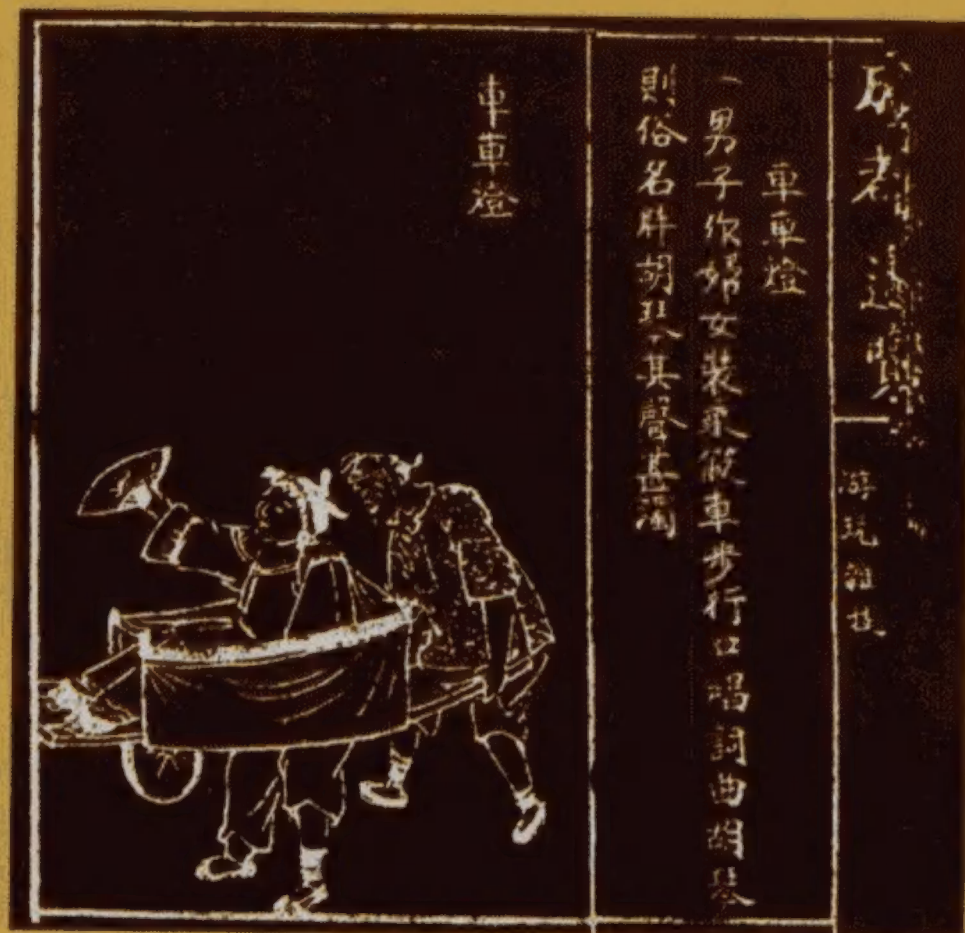 成都通覽
游玩雜技
車車燈
一男子作婦女裝乘篾車步行口唱詞曲胡琴
則俗名胖胡琴其聲甚濁
車車燈